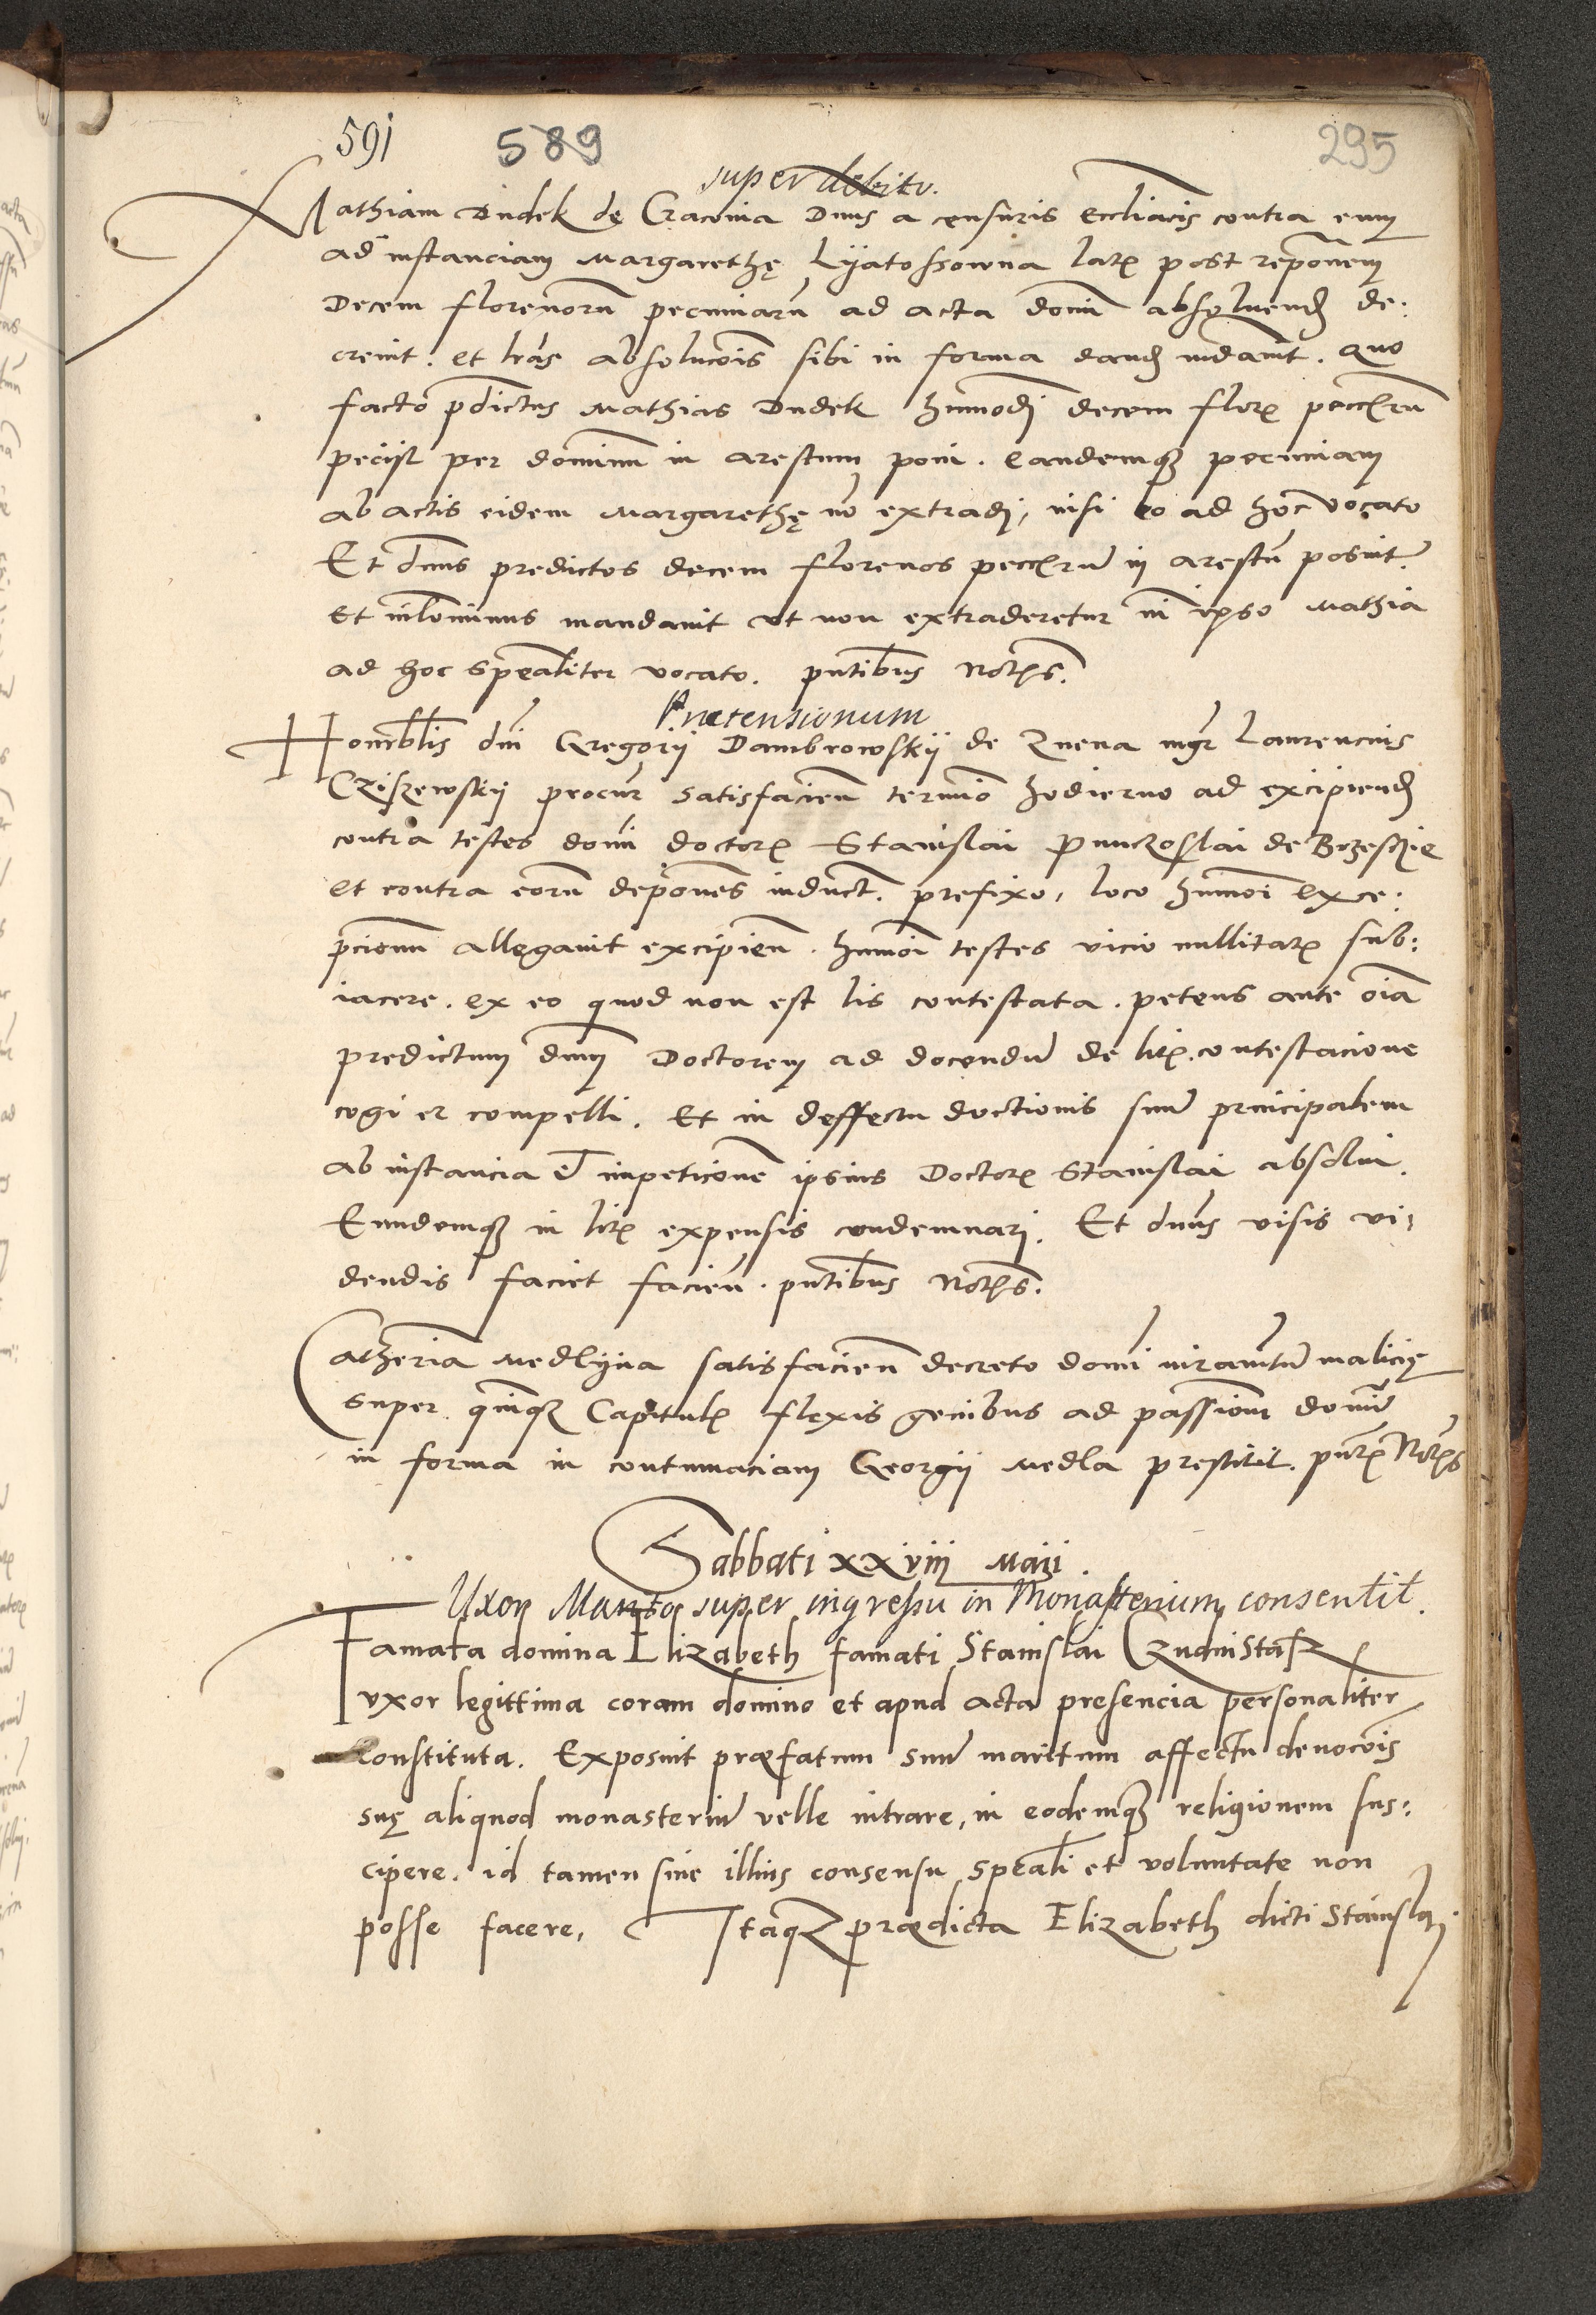 591 589 295
super debito.
Mathiam Dudek de Cracovia Dnus a censuris eccliacis contra eum
ad instanciam Margarethę Lyatossowna lat post reponem
Decem florenoru pecuniaru ad acta domi absoluend de:
creuit. et lras absolucois sibi in forma dand mdauit. Quo
facto pdictus Mathias Dudek hmmodi decem flor pecciru
peciit per dominum in arestum poni. eandemq pecuniam
ab actis eidem Margarethę no extradi, nisi eo ad hoc vocato
Et dnus predictos decem florenos pecciru in arestu posuit.
Et inhominus mandauit ut non extraderetur ni ipso Mathia
ad hoc spealiter vocato. pntibus Notis.
Praetensionum
Honorblis dni Gregorij Dambrowskij de Znena mgr Laurencius
Cziszewskij procur satisfacien termio hodierno ad excipiend
contra testes domi doctor Stanislai de Brzeszie
et contra eoru depones induct. prefixo, loco hmmoi exce:
pcionu allegauit excipien. hmmoi testes vicio nullitat sub:
iacere. ex eo quod non est lis contestata. petens ante oia
predictum dnum Doctorem ad docendu de lit contestacione
cogi et compelli. Et in deffectu doctionis suu principalem
ab instancia et impeticione ipsius Doctor Stanislai absolui.
Eundemq in lit expensis condemnari. Et dnus visis vi,
dendis faciet facien. pntibus Notis.
Catherina Medlyna satisfacien decreto domi iurantu malicię
super quinq Capitul flexis genibus ad passionem domi
in forma in contumaciam Georgij Medla prestitit. pnt Notis
Sabbati xxviij Maij.
Uxor Marito super ingressu in Monasterium consentit.
Famata domina Elizabeth famati Stanislai
vxor legittima coram domino et apud acta presencia personaliter
Constituta. Exposuit præfatum suu maritum affectu deuocois
suę aliquod monasteriu velle intrare, in eodemq religionem sus:
cipere. id tamen sine illius consensu speali et voluntate non
posse facere, Itaq prædicta Elizabeth dicti Stanislai